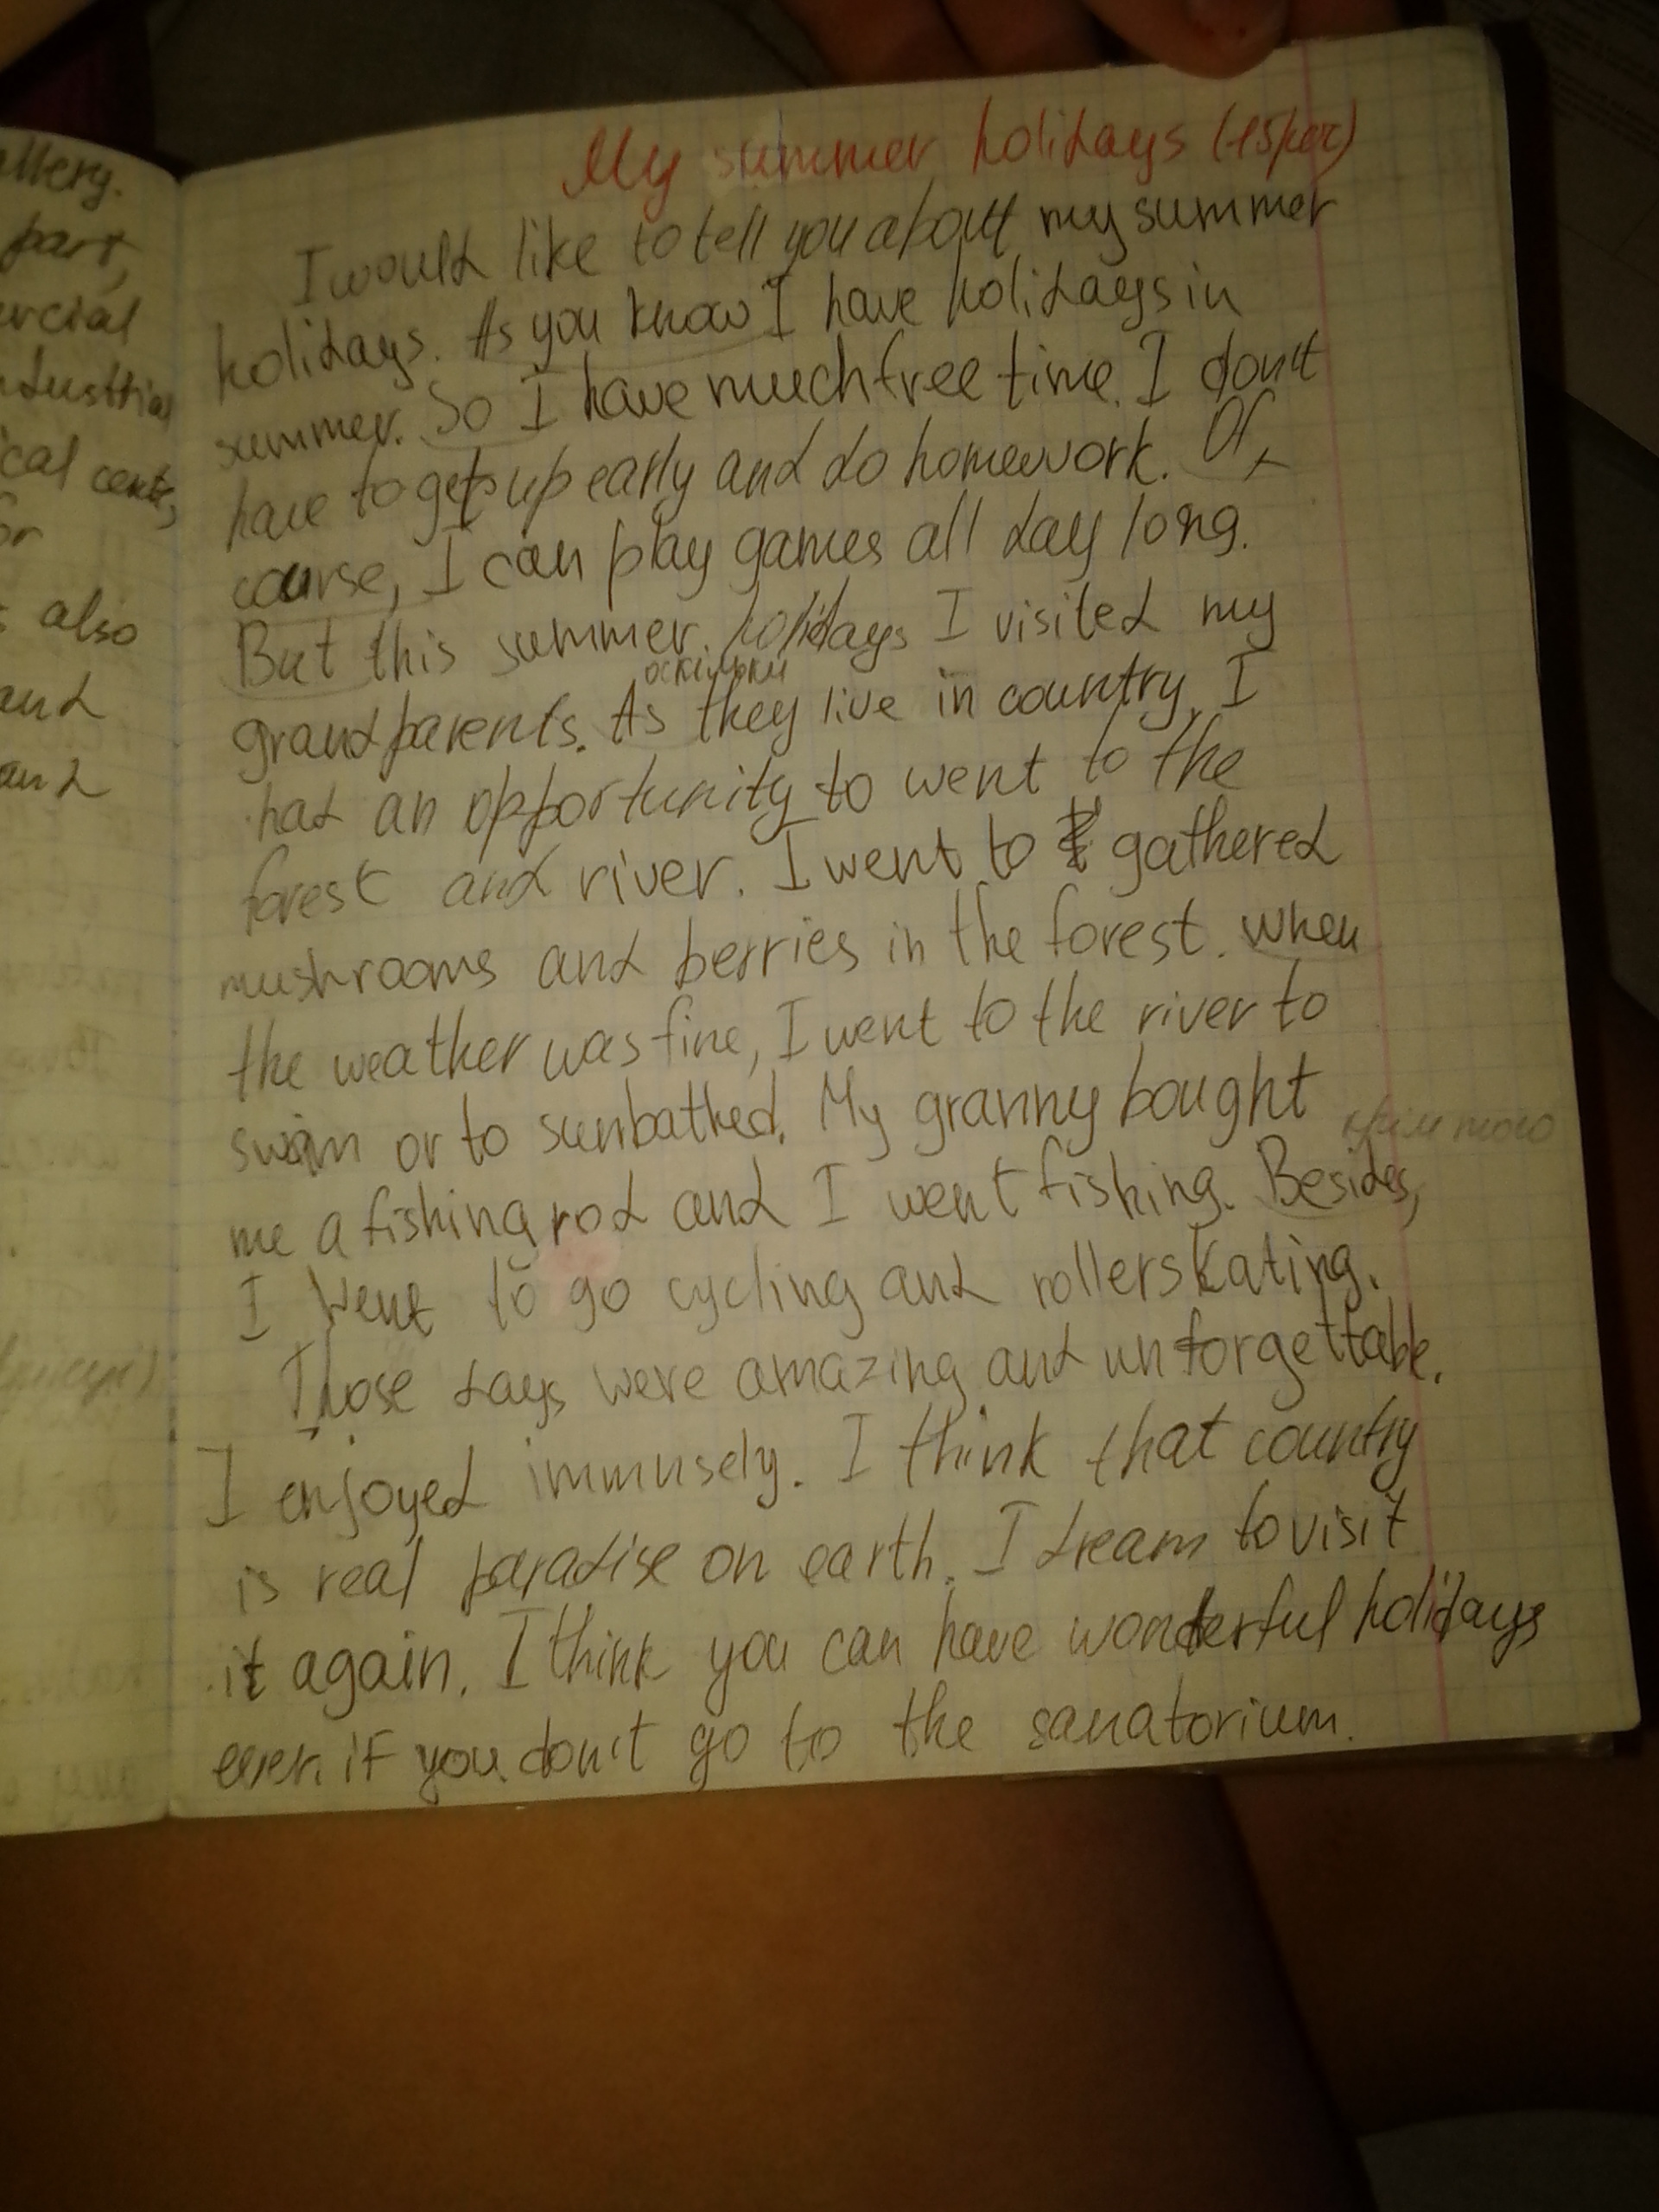 allery.
part,
ercial
ndusttial
ical cente,
or
s also
and
and
My summer holidays (15 рек)
I would like to tell you about my summer
holidays. As you know I have holidays in
summer. So I have much free time. I don't
have to get up early and do homework. Of
course, I can play games all day long.
But this summer holidays I visited my
оскільки
grandparents. As they live in country, I
had an opportunity to went to the
forest and river. I went to gathered
mushrooms and berries in the forest. When
the weather was fine, I went to the river to
swim or to sunbathed. My granny bought
крім того
me a fishing rod and I went fishing. Besides,
I went to go cycling and rollerskating.
Those days were amazing and unforgettable.
I enjoyed immnsely. I think that country
is real paradise on earth. I dream to visit
it again. I think you can have wonderful holidays
even if you don't go to the sanatorium.